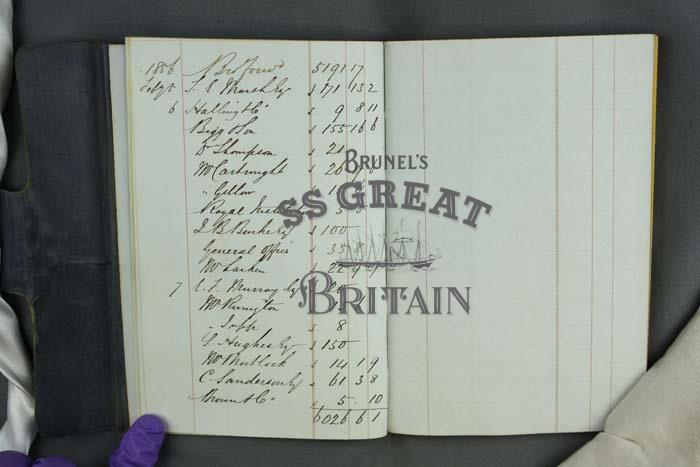 1856 Bro Forwd 5191 17
Feby 5 T. E. Marsh Esq 171 13 2
6 Halling & Co 9 8 11
Bigg & Son 155 16 6
Dr Thompson 21
Mr Cartwright 26
" Gillow
Royal
I. B. Burke Esq 100
General Office 35
Mr Larken 22 9 9
7 E. F. Murray Esq
Mr Rumington
" Jupp 8
T. Hughes Esq 150
Mr Mortlock 14 1 9
C. Sanderson Esq 61 3 8
Brown & Co 5 10
6026 6 1
BRUNEL'S
SS GREAT
BRITAIN